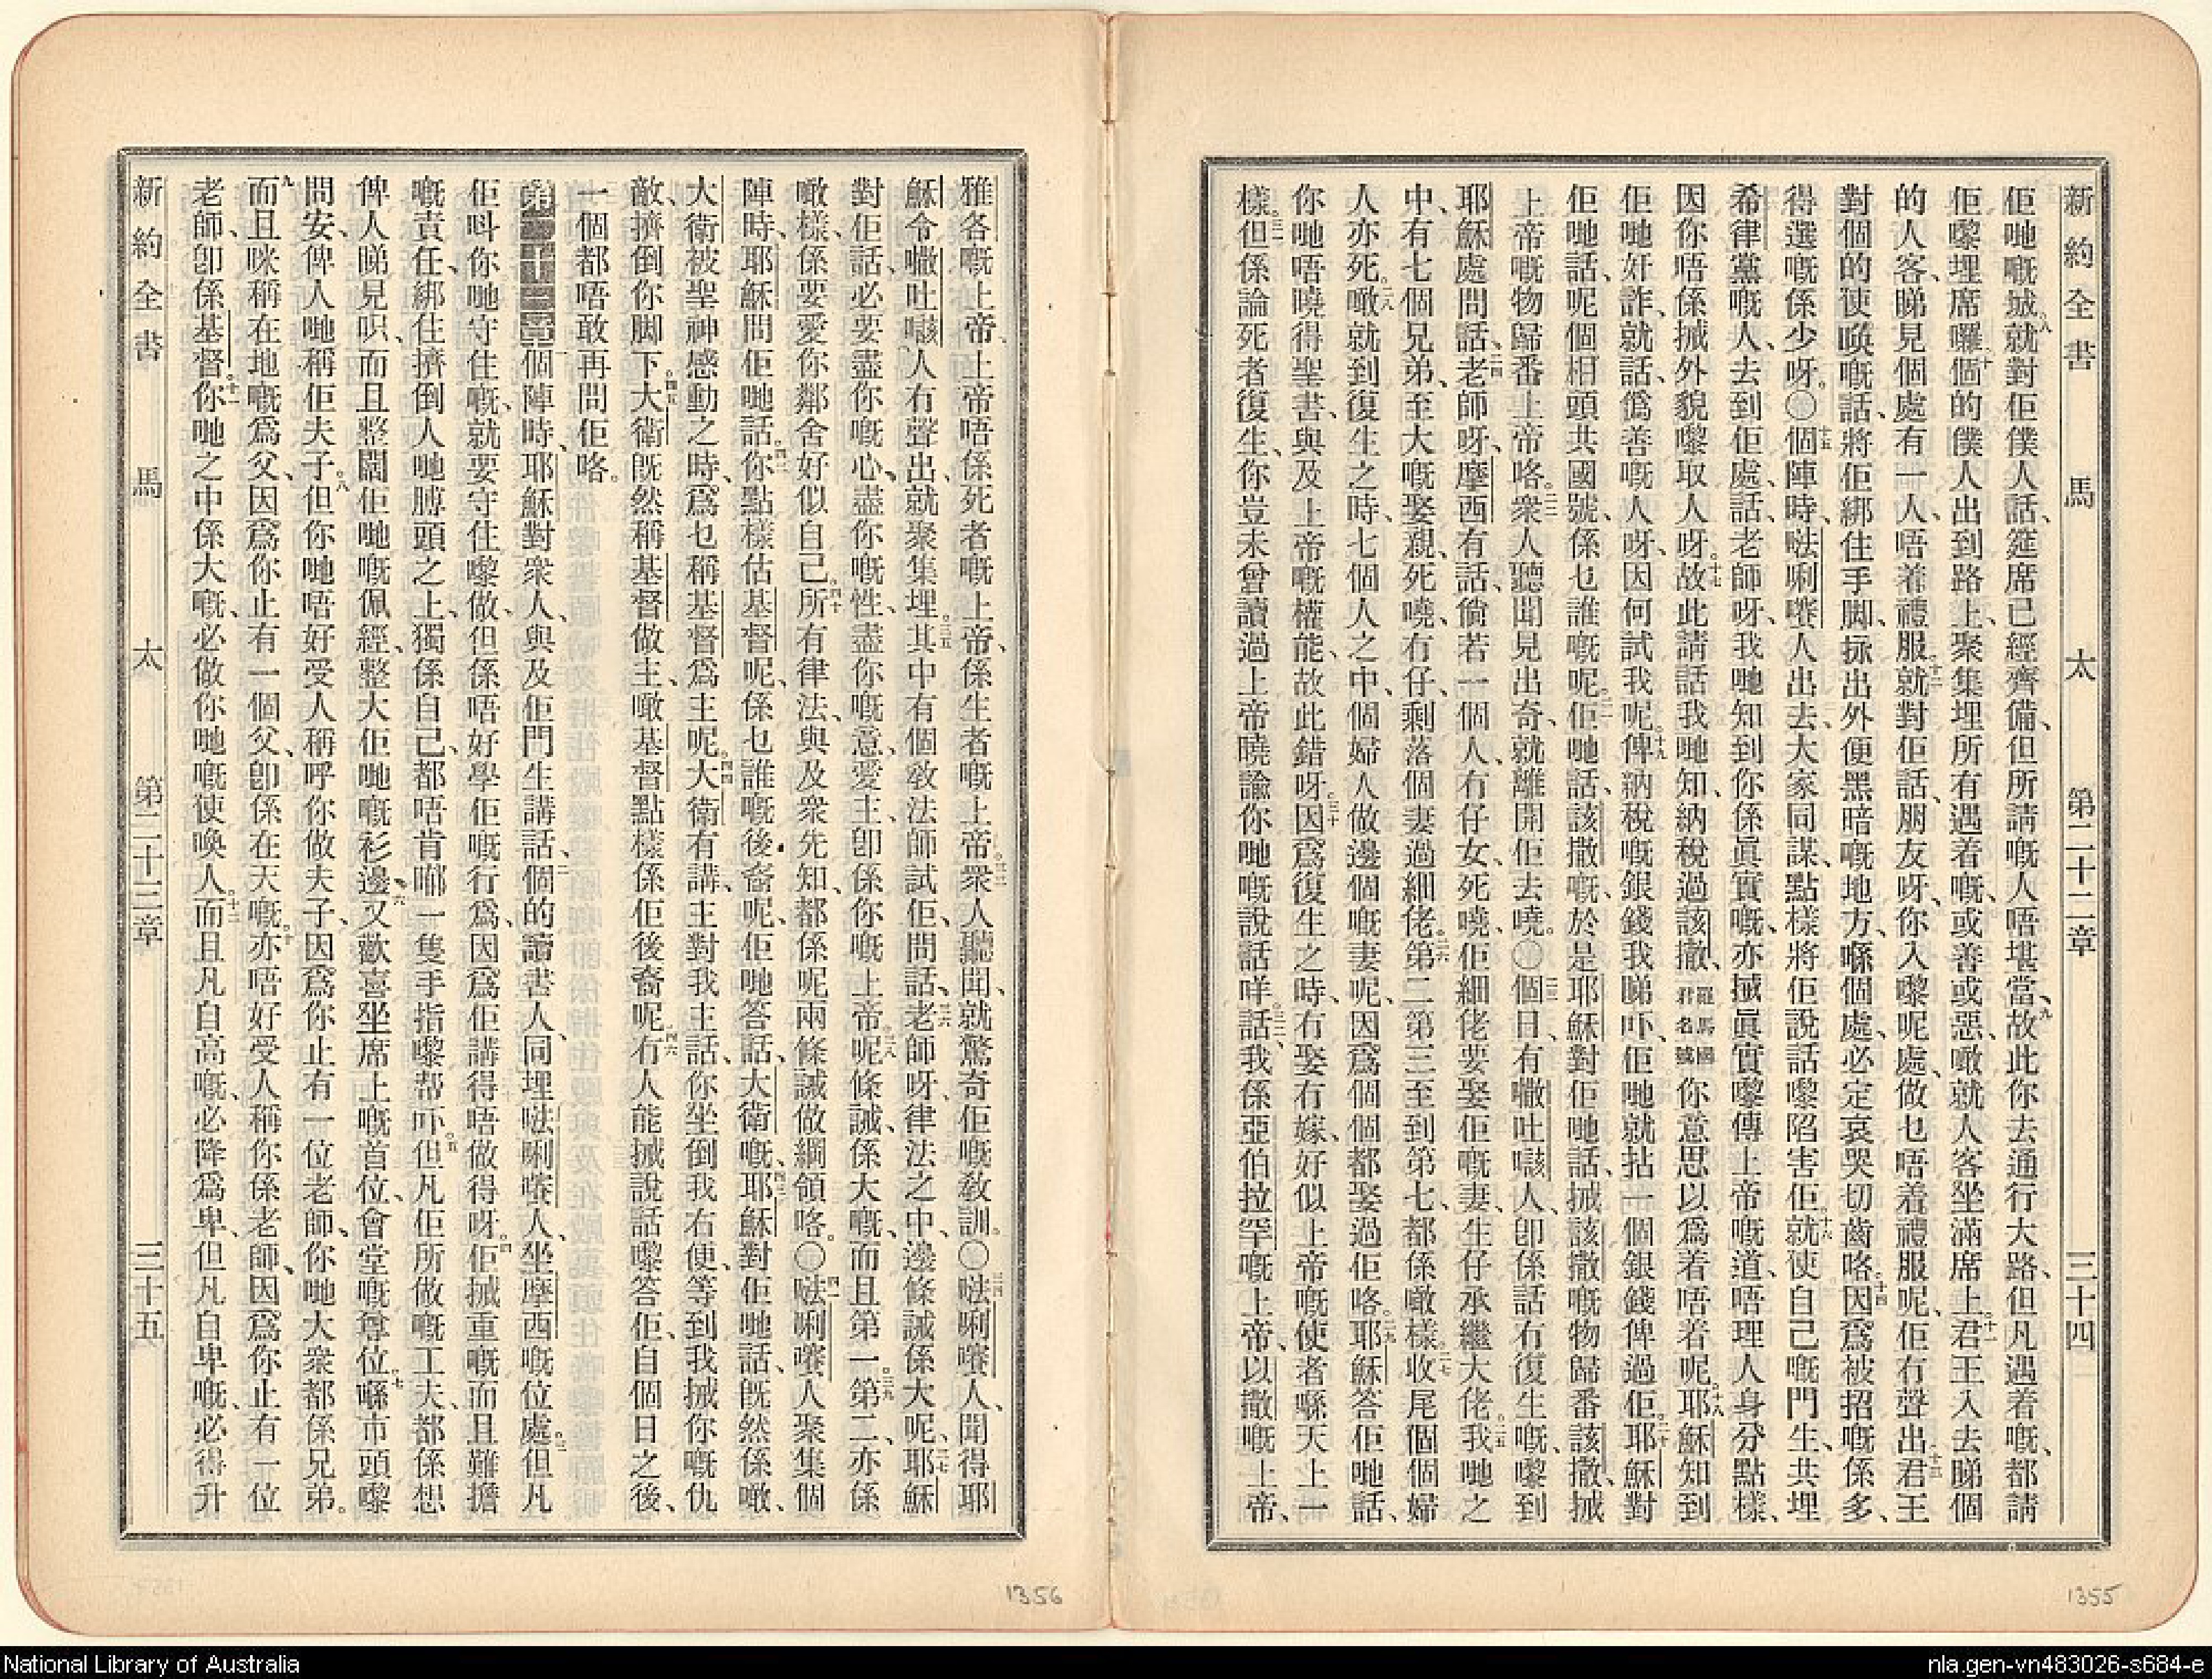 新約全書 馬太 第二十二章 三十四
佢哋嘅城。八就對佢僕人話、筵席已經齊備、但所請嘅人唔堪當、九故此你去通行大路、但凡遇着嘅、都請
佢嚟埋席囉。十個的僕人出到路上、聚集埋所有遇着嘅、或善或惡、噉就人客坐滿席上。十一君王入去睇個
的人客、睇見個處有一人、唔着禮服、十二就對佢話、朋友呀、你入嚟呢處、做乜唔着禮服呢、佢冇聲出。十三君王
對個的使喚嘅話、將佢綁住手脚、拯出外便黑暗嘅地方、喺個處、必定哀哭切齒咯。十四因爲被招嘅係多、
得選嘅係少呀。〇十五個陣時、㗒唎㘔人出去、大家同謀、點樣將佢說話嚟陷害佢。十六就使自己嘅門生、共埋
希律黨嘅人、去到佢處、話、老師呀、我哋知到你係眞實嘅、亦搣眞實嚟傳上帝嘅道、唔理人身分點樣、
因你唔係搣外貌嚟取人呀。十七故此請話我哋知、納稅過該撒、羅馬國君名號你意思以爲着唔着呢。十八耶穌知到
佢哋奸詐、就話、僞善嘅人呀、因何試我呢。十九俾納稅嘅銀錢我睇吓、佢哋就拈一個銀錢俾過佢。二十耶穌對
佢哋話、呢個相頭共國號、係乜誰嘅呢。二一佢哋話、該撒嘅、於是耶穌對佢哋話、搣該撒嘅物歸番該撒、搣
上帝嘅物歸番上帝咯。二二衆人聽聞見出奇、就離開佢去嘵。〇二三個日、有㘔吐㗒人、卽係話冇復生嘅、嚟到
耶穌處問話、二四老師呀、摩西有話、倘若一個人、冇仔女死嘵、佢細佬要娶佢嘅妻、生仔承繼大佬。二五我哋之
中、有七個兄弟、至大嘅娶親、死嘵、冇仔、剩落個妻過細佬。二六第二第三至到第七、都係噉樣。二七收尾個個婦
人亦死。二八噉就到復生之時、七個人之中、個婦人做邊個嘅妻呢、因爲個個都娶過佢咯。二九耶穌答佢哋話、
你哋唔曉得聖書、與及上帝嘅權能、故此錯呀。三十因爲復生之時、冇娶冇嫁、好似上帝嘅使者喺天上一
樣。三一但係論死者復生、你豈未曾讀過上帝曉諭你哋嘅說話咩。三二話、我係亞伯拉罕嘅上帝、以撒嘅上帝、
新約全書 馬太 第二十三章 三十五
雅各嘅上帝、上帝唔係死者嘅上帝、係生者嘅上帝。三三衆人聽聞、就驚奇佢嘅敎訓。〇三四㗒唎㘔人、聞得耶
穌令㘔吐㗒人冇聲出、就聚集埋。三五其中有個敎法師試佢、問話、三六老師呀、律法之中、邊條誡係大呢、三七耶穌
對佢話、必要盡你嘅心、盡你嘅性、盡你嘅意、愛主卽係你嘅上帝。三八呢條誡、係大嘅、而且第一。三九第二、亦係
噉樣、係要愛你鄰舍好似自己。四十所有律法、與及衆先知、都係呢兩條誡做綱領咯。〇四一㗒唎㘔人聚集個
陣時、耶穌問佢哋話。四二你點樣估基督呢、係乜誰嘅後裔呢、佢哋答話、大衛嘅、四三耶穌對佢哋話、旣然係噉、
大衛被聖神感動之時、爲乜稱基督爲主呢。四四大衛有講、主對我主話、你坐倒我右便、等到我搣你嘅仇
敵、擠倒你脚下。四五大衛旣然稱基督做主、噉基督點樣係佢後裔呢。四六冇人能搣說話嚟答佢、自個日之後、
一個都唔敢再問佢咯。
第二十三章 一個陣時、耶穌對衆人、與及佢門生講話、二個的讀書人、同埋㗒唎㘔人、坐摩西嘅位處。三但凡
佢呌你哋守住嘅、就要守住嚟做、但係唔好學佢嘅行爲、因爲佢講得唔做得呀。四佢搣重嘅而且難擔
嘅責任、綁住擠倒人哋膊頭之上、獨係自己、都唔肯㨢一隻手指嚟帮吓。五但凡佢所做嘅工夫、都係想
俾人睇見呮、而且整闊佢哋嘅佩經、整大佢哋嘅衫邊。六又歡喜坐席上嘅首位、會堂嘅尊位。七喺市頭嚟
問安、俾人哋稱佢夫子。八但你哋唔好受人稱呼你做夫子、因爲你止有一位老師、你哋大衆都係兄弟。
九而且咪稱在地嘅爲父、因爲你止有一個父、卽係在天嘅。十亦唔好受人稱你係老師、因爲你止有一位
老師、卽係基督。十一你哋之中係大嘅、必做你哋嘅使喚人。十二而且凡自高嘅、必降爲卑、但凡自卑嘅、必得升
1356
1355
National Library of Australia
nla.gen-vn483026-s684-e